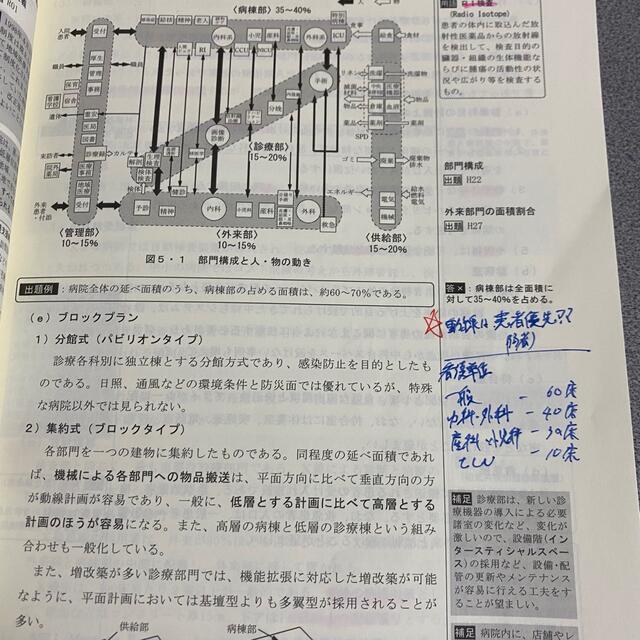 RI検査
(Radio Isotope)
患者の体内に取込んだ放
射性医薬品からの放射線
を検出して、検査目的の
臓器・組織の生体機能な
らびに腫瘍の活動性の状
況や広がり等を検査する
もの。
〈病棟部〉35～40%
人
物
入院
患者
受付
内科系
外科系
ICU
小児
産科
精神
老人
RI
CCU
NICU
給食
食事
食材
厚生
管理
事務
職員
手術
リネン
洗濯
洗濯物
保育
宿舎
滅菌
材料
中央
材料
医療
機器
物品
倉庫
血液
物品
遺体
霊安
医局
図書
薬品
薬局
薬剤
SPD
分娩
画像
診断
〈診療部〉
15～20%
来訪者
診療録
カルテ
解剖
生理
検査
検体
検査
検体
ゴミ
廃棄
廃棄物
排水
院外
薬局
医療
事務
健診
エネルギー
電気
機械
給水
燃料
電気
外来
患者・付添
受付
予診
精神
内科
小児科
産科
外科
救急
〈管理部〉
10～15%
〈外来部〉
10～15%
〈供給部〉
15～20%
図5・1 部門構成と人・物の動き
部門構成
出題 H22
外来部門の面積割合
出題 H27
出題例：病院全体の延べ面積のうち、病棟部の占める面積は、約60～70%である。
答×：病棟部は全面積に
対して35～40%を占める。
(e) ブロックプラン
1) 分館式（パビリオンタイプ）
診療各科別に独立棟とする分館方式であり、感染防止を目的としたも
のである。日照、通風などの環境条件と防災面では優れているが、特殊
な病院以外では見られない。
2) 集約式（ブロックタイプ）
各部門を一つの建物に集約したものである。同程度の延べ面積であれ
ば、機械による各部門への物品搬送は、平面方向に比べて垂直方向の方
が動線計画が容易であり、一般に、低層とする計画に比べて高層とする
計画のほうが容易になる。また、高層の病棟と低層の診療棟という組み
合わせも一般化している。
また、増改築が多い診療部門では、機能拡張に対応した増改築が可能
なように、平面計画においては基壇型よりも多翼型が採用されることが
多い。
患者優先??
看護単位
一般 － 60床
内科・外科 － 40床
産科 － 30床
ICU － 10床
補足 診療部は、新しい診
療機器の導入による必要
諸室の変化など、変化が
激しいので、設備階（イン
タースティシャルスペー
ス）の採用など、設備・配
管の更新やメンテナンス
が容易に行える工夫をす
ることが望ましい。
供給部
病棟部
補足 病院内に、店舗や